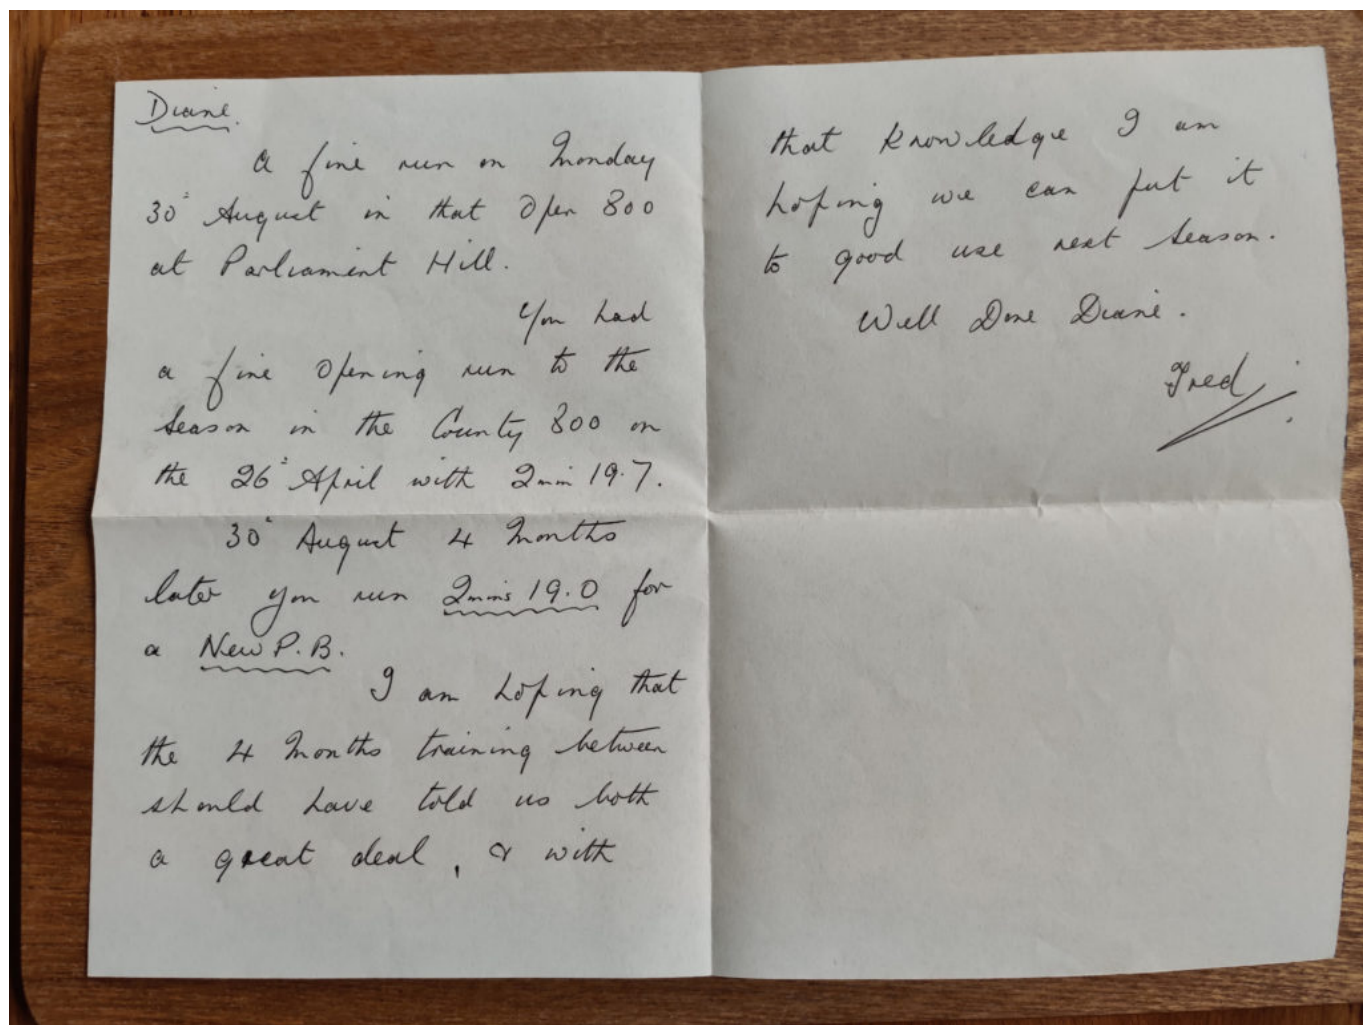 Diane.
A fine run on Monday
30" August in that Open 800
at Parliament Hill.
You had
a fine opening run to the
season in the County 800 on
the 26" April with 2min 19.7.
30" August 4 Months
later you run 2mins 19.0 for
a New P.B.
I am hoping that
the 4 Months training between
should have told us both
a great deal, & with
that knowledge I am
hoping we can put it
to good use next season.
Well Done Diane.
Fred